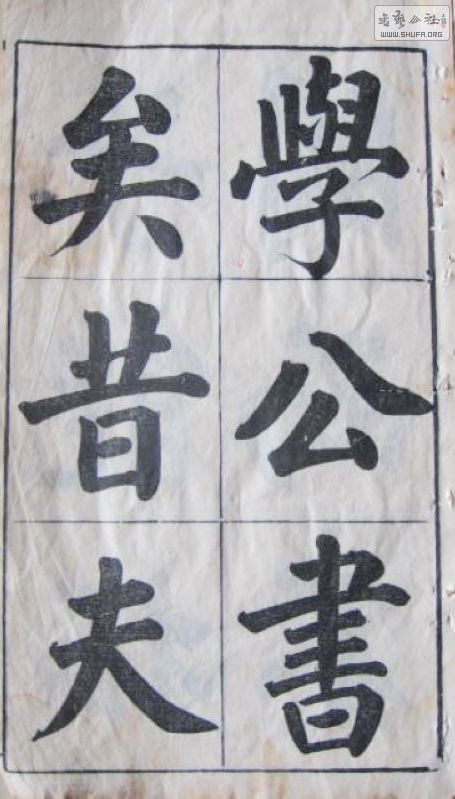 學公書
矣昔夫
WWW.SHUFA.ORG